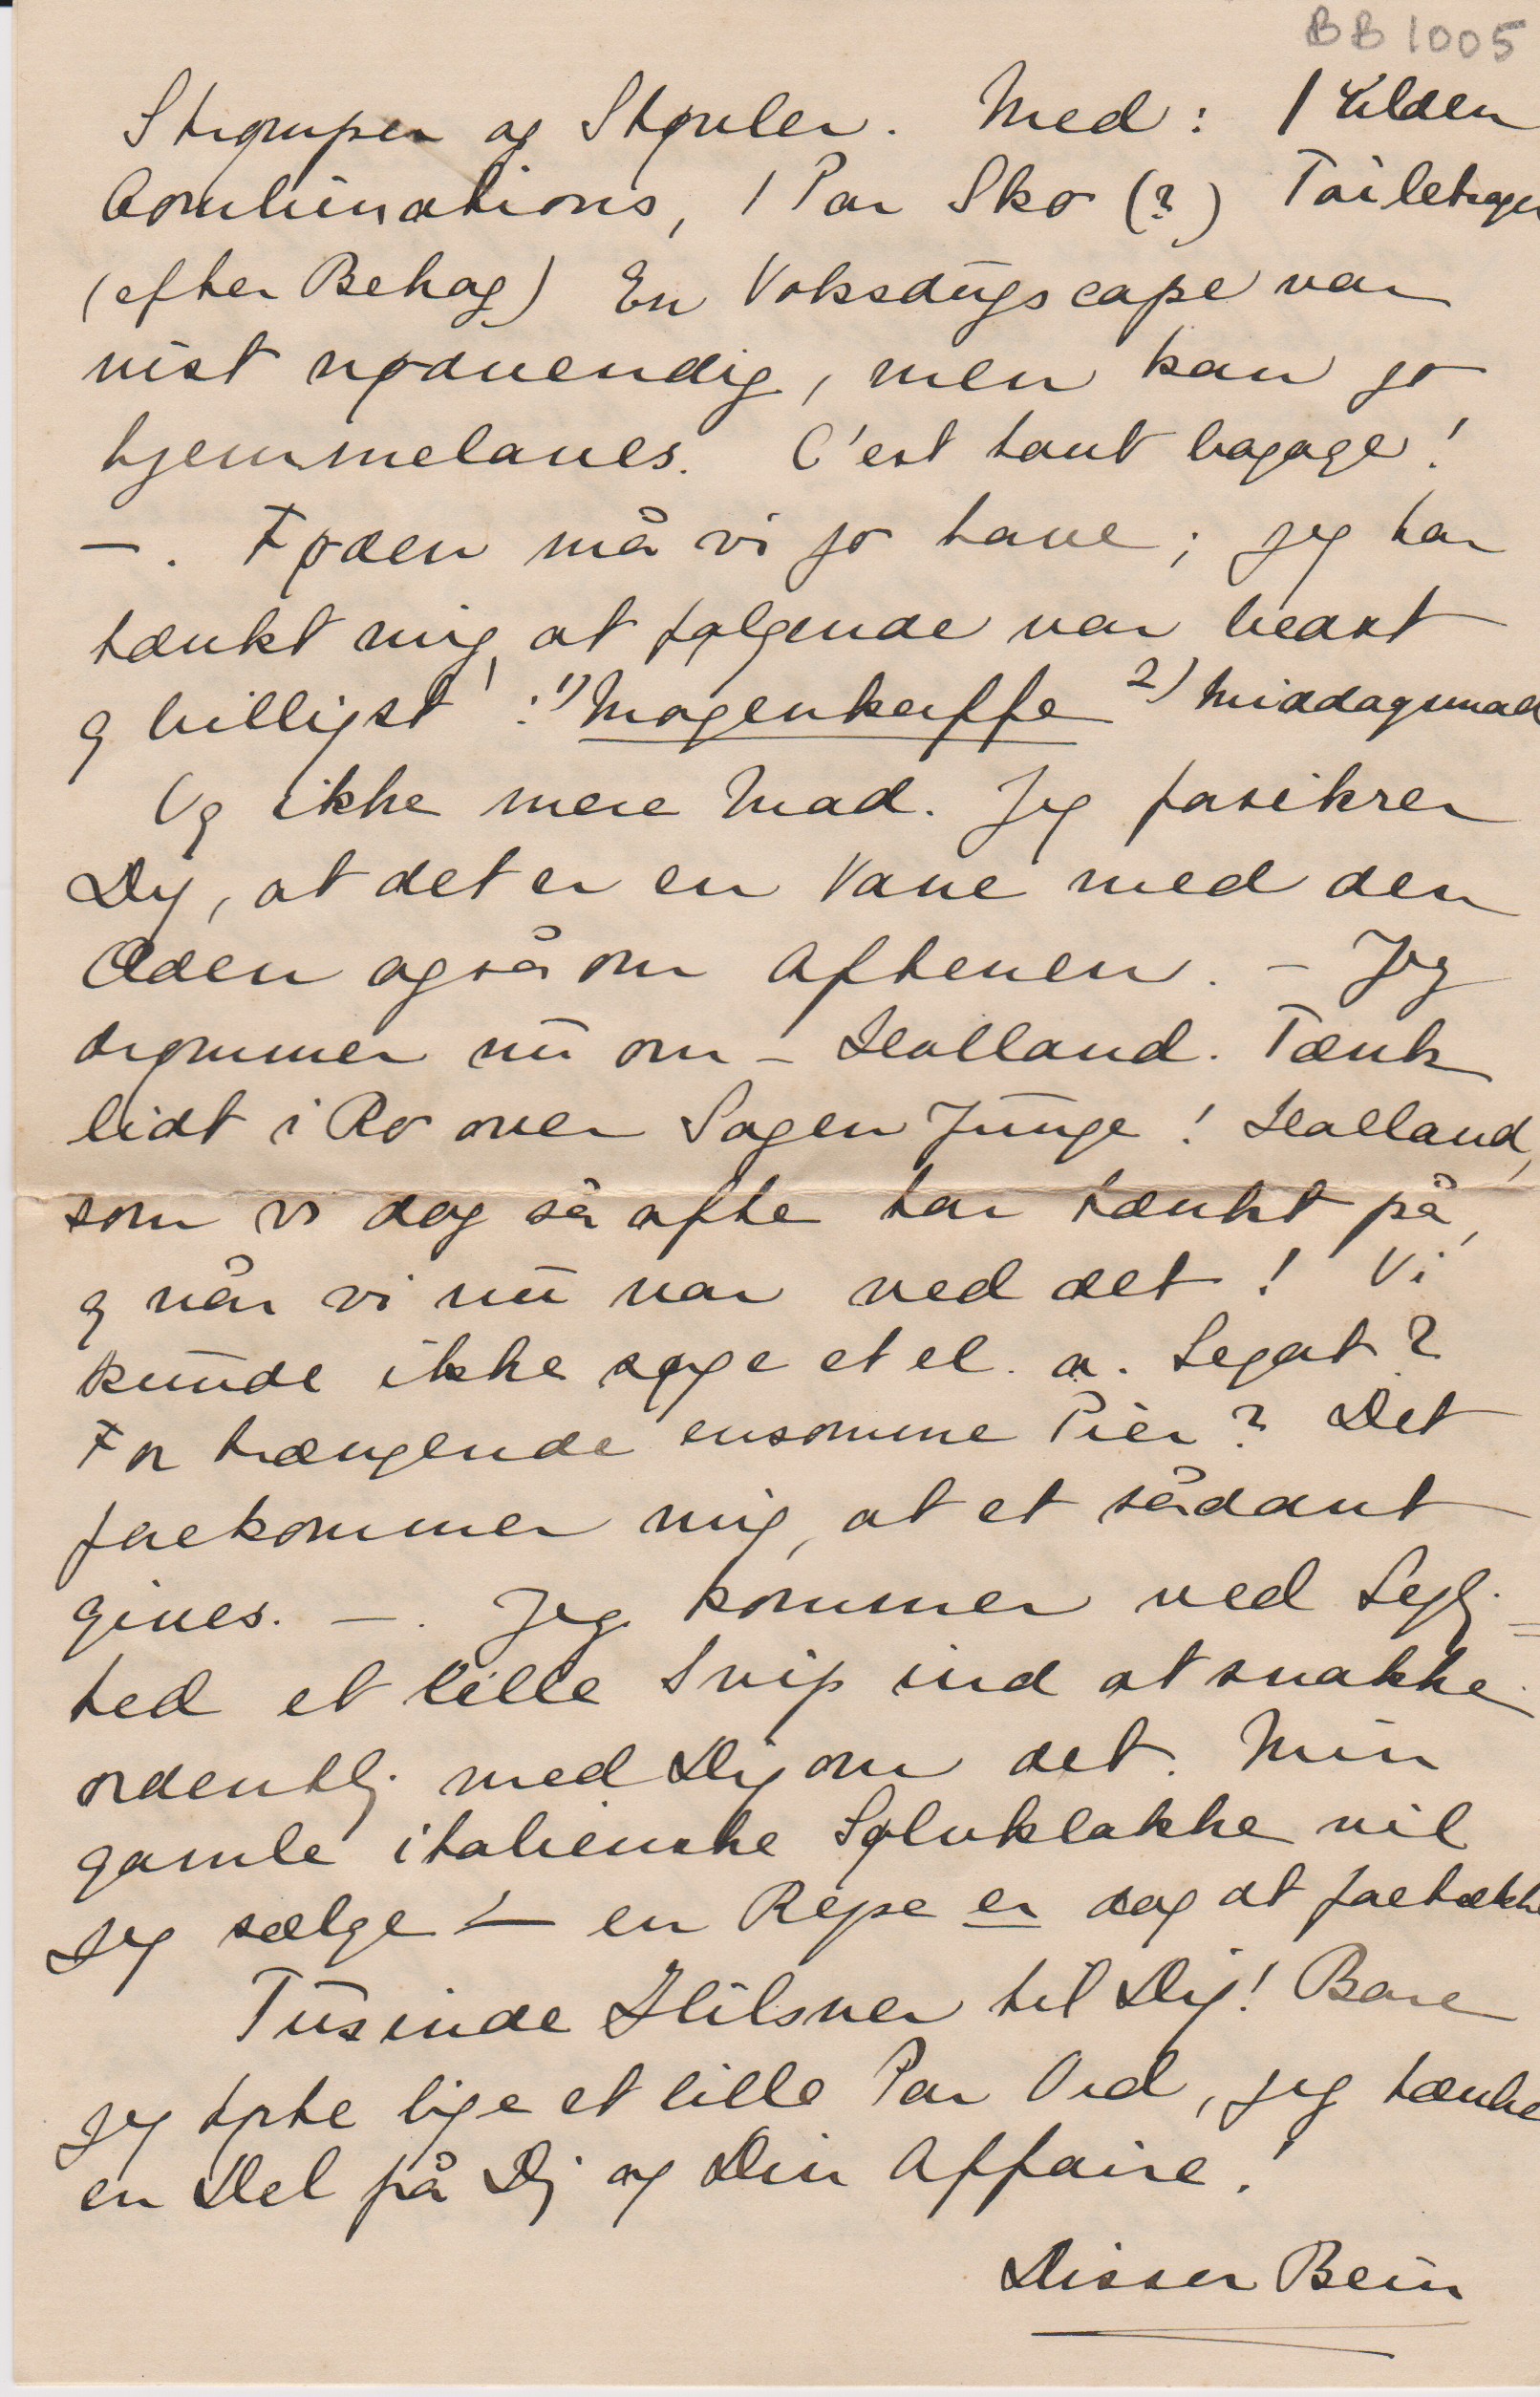 BB 1005
Strømper og Støvler. Med: 1 Ulden
Combinations, 1 Par Sko (?) Toiletsager
(efter Behag) En Voksdugscape var
vist nødvendig, men kan jo
hjemmelaves. C'est tout bagage!
—. Føden må vi jo have; jeg har
tænkt mig, at følgende var bedst
og billigst: 1) Morgenkaffe 2) Middagsmad
Og ikke mere Mad. Jeg forsikrer
Dig, at det er en Vane med den
Æden også om Aftenen. – Jeg
drømmer nu om – Holland. Tænk
lidt i Ro over Sagen Junge! Holland,
som vi dog så ofte har tænkt på,
og når vi nu var ved det! Vi
kunde ikke søge et el. a. Legat?
For trængende ensomme Pier? Det
forekommer mig, at et sådant
gives. —. Jeg kommer ved Lejlig=
hed et lille Svip ind at snakke
ordentlig med Dig om det. Min
gamle italienske Sølvklokke vil
jeg sælge — en Rejse er dog at foretrække
Tusinde Hilsner til Dig! Bare
jeg hørte lige et lille Par Ord, jeg tænker
en Del på Dig og Din Affaire!
Disser Bein